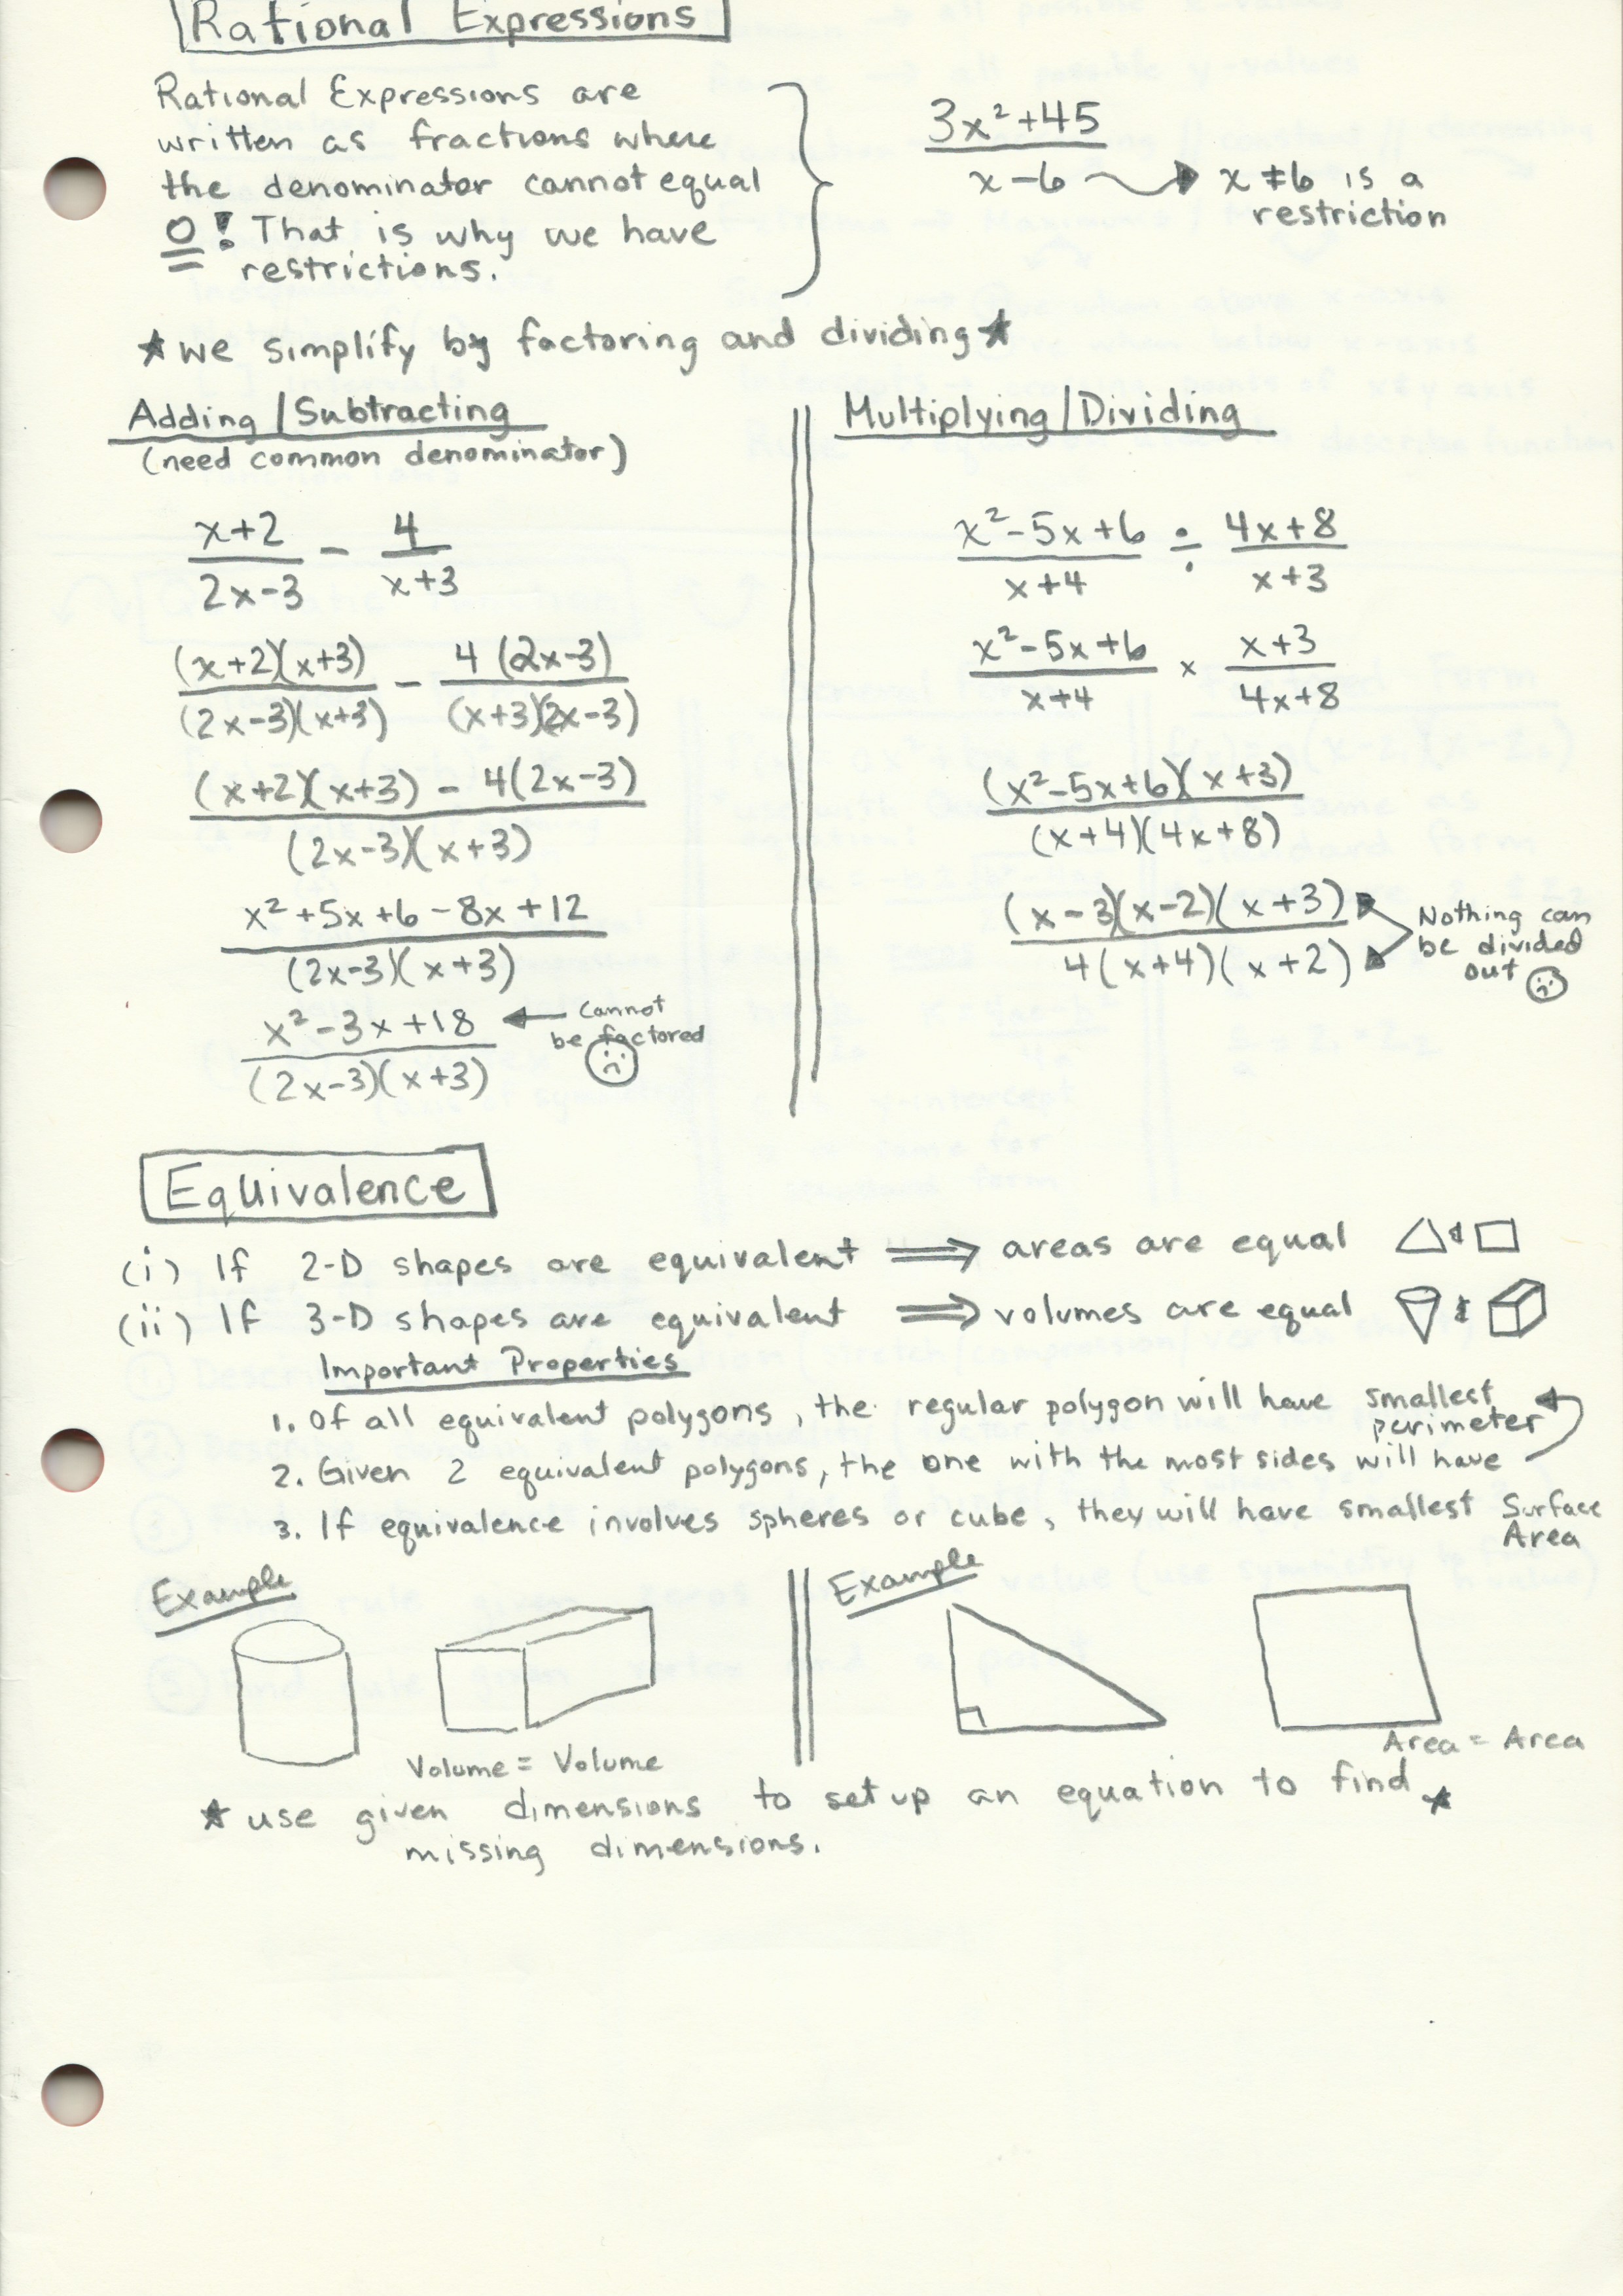 Rational Expressions
Rational Expressions are
written as fractions where
the denominator cannot equal
0! That is why we have
restrictions.
3x²+45
x-6 → x≠6 is a
restriction
★ we simplify by factoring and dividing ★
Adding/Subtracting
(need common denominator)
x+2 / 2x-3 - 4 / x+3
(x+2)(x+3) / (2x-3)(x+3) - 4(2x-3) / (x+3)(2x-3)
(x+2)(x+3) - 4(2x-3) / (2x-3)(x+3)
x²+5x+6-8x+12 / (2x-3)(x+3)
x²-3x+18 / (2x-3)(x+3) ← cannot
be factored
Multiplying/Dividing
x²-5x+6 / x+4 ÷ 4x+8 / x+3
x²-5x+6 / x+4 × x+3 / 4x+8
(x²-5x+6)(x+3) / (x+4)(4x+8)
(x-3)(x-2)(x+3) / 4(x+4)(x+2)
Nothing can
be divided
out
Equivalence
(i) If 2-D shapes are equivalent ⟹ areas are equal △ & □
(ii) If 3-D shapes are equivalent ⟹ volumes are equal &
Important Properties
1. Of all equivalent polygons, the regular polygon will have smallest
perimeter
2. Given 2 equivalent polygons, the one with the most sides will have
3. If equivalence involves spheres or cube, they will have smallest Surface
Area
Example
Volume = Volume
Example
Area = Area
★ use given dimensions to set up an equation to find ★
missing dimensions.